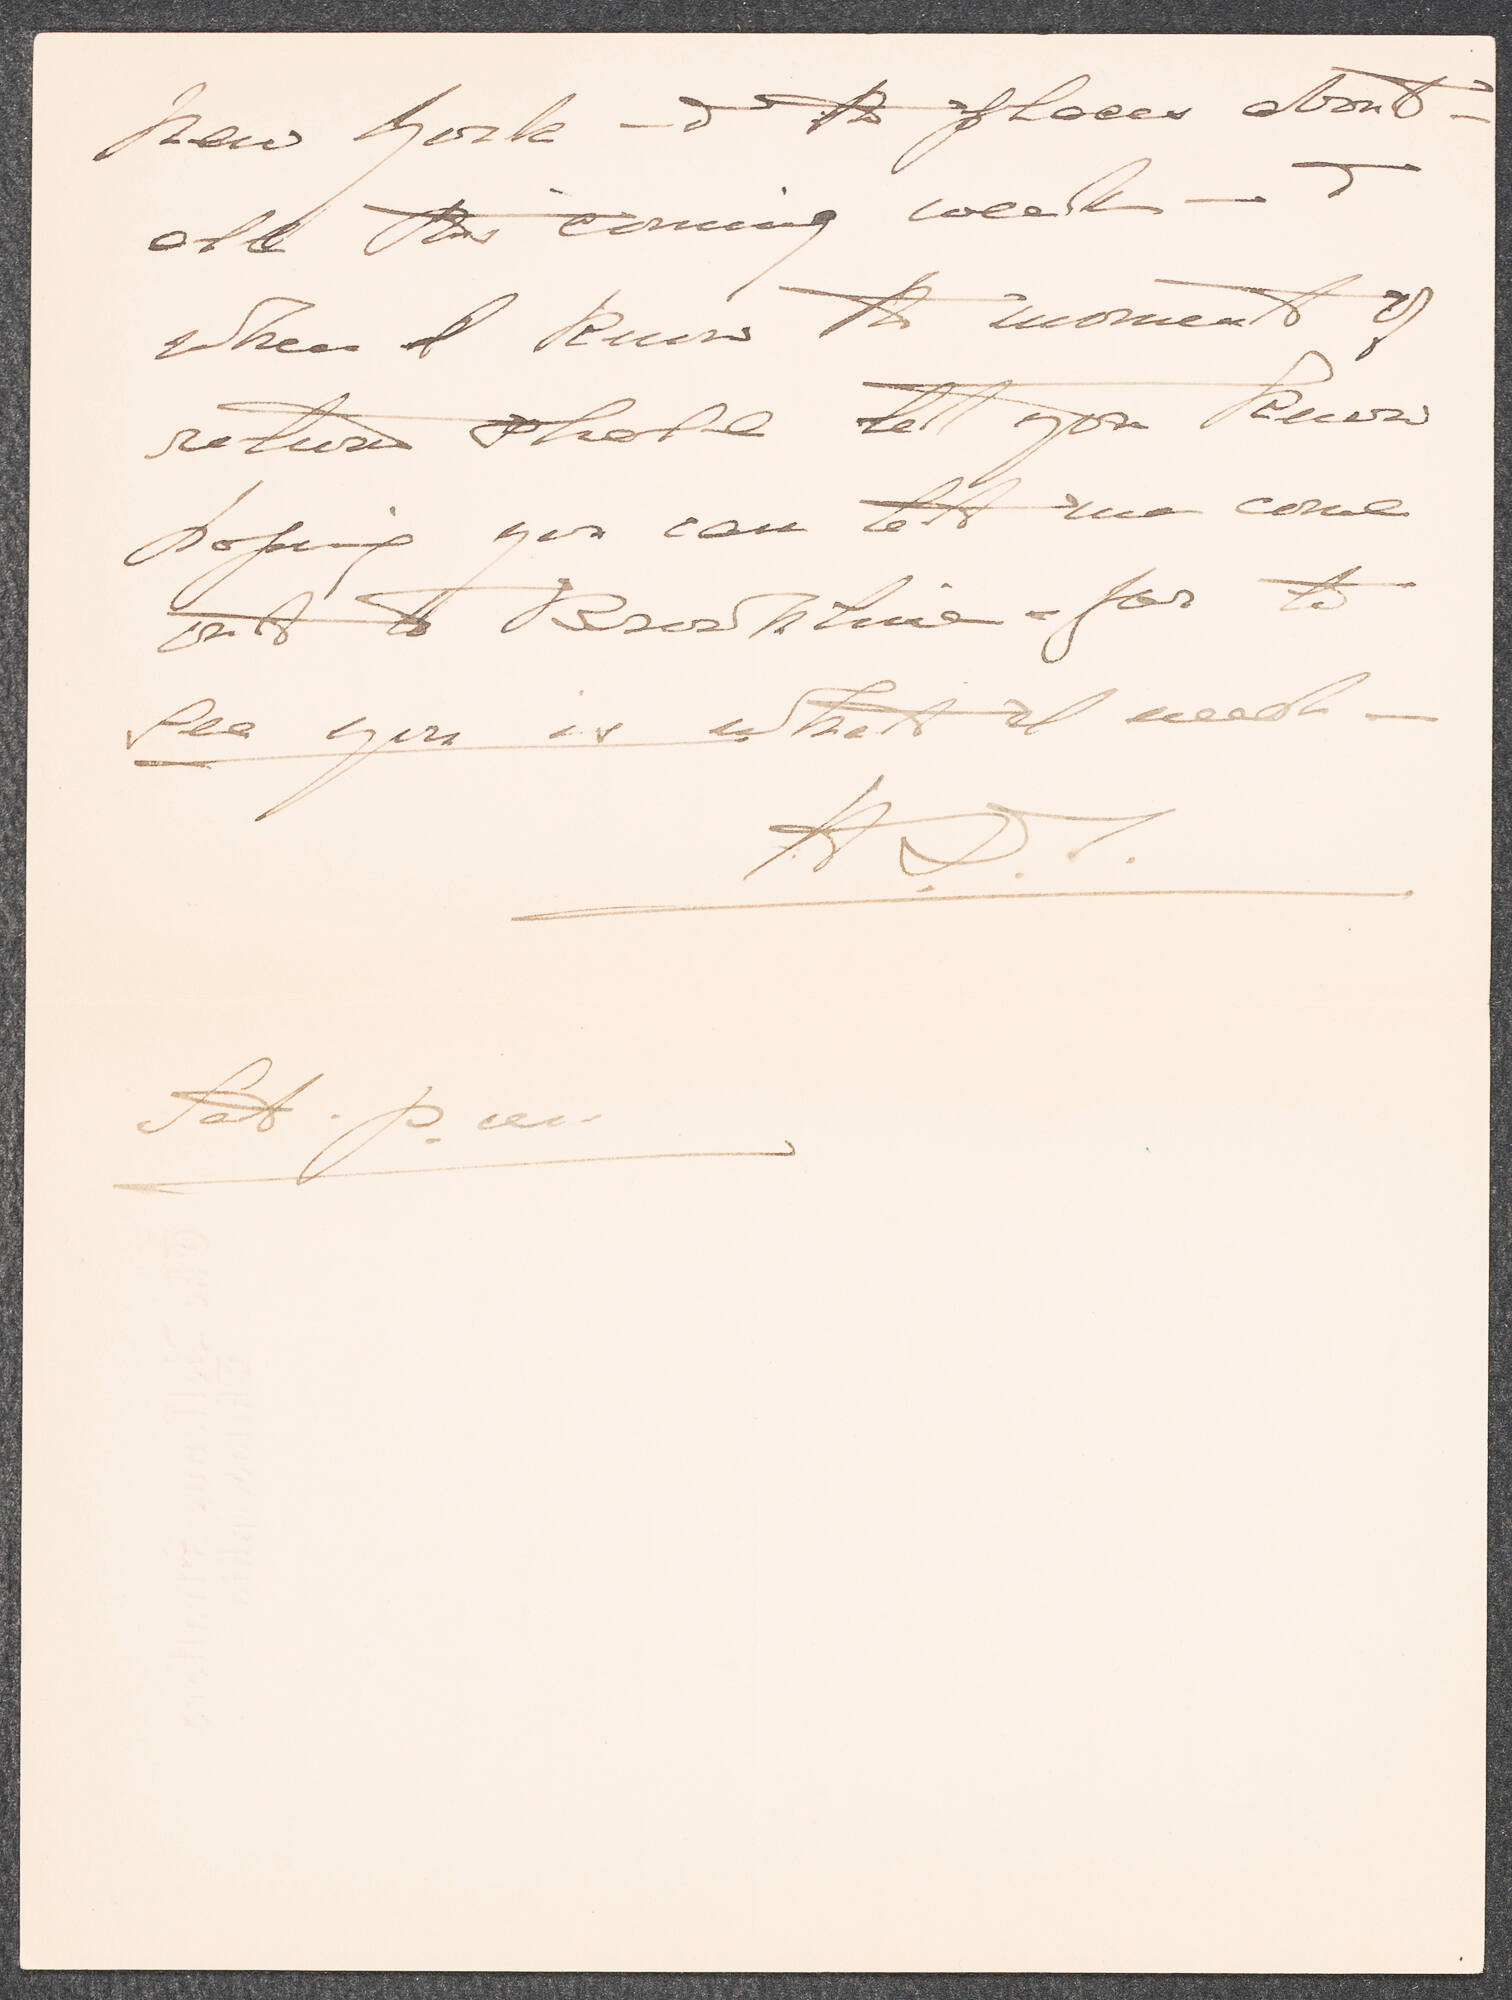 New York — & the places about —
all this coming week — &
when I know the moment of
return shall tell you know
hoping you can let me come
out to Brookline — for to
see you is what I need —
A. D. T.
Sat. p.m.